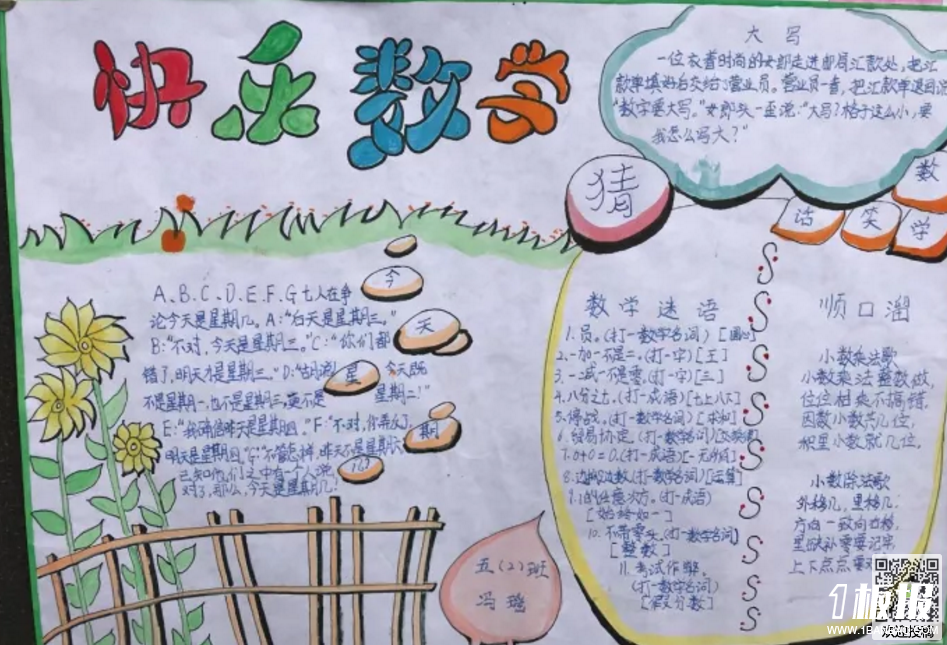 快乐数学
大写
一位衣着时尚的女郎走进邮局汇款处,把汇
款单填好后交给了营业员。营业员一看,把汇款单退回说
"数字要大写。"女郎头一歪说:"大写?格子这么小,要
我怎么写大?"
猜
数
学
笑
话
今
天
星
期
几?
A、B、C、D、E、F、G七人在争
论今天是星期几。A:"后天是星期三。"
B:"不对,今天是星期三。"C:"你们都
错了,明天才是星期三。"D:"胡说!今天既
不是星期一,也不是星期二,更不是星期三!"
E:"我确信昨天是星期四。"F:"不对,你弄反了,
明天是星期四。"G:"不管怎样,昨天不是星期六
已知他们之中有一个人说
对了,那么,今天是星期几?
数学谜语
1.员。(打一数学名词)[圆心]
2.一加一不是二。(打一字)[王]
3.一减一不是零。(打一字)[三]
4.八分之七。(打一成语)[七上八下]
5.停战。(打一数学名词)[求和]
6.贸易协定。(打一数学名词)
7.0+0=0.(打一成语)[一无所有]
8.边算边数(打一数学名词)[运算]
9.1的任意次方。(打一成语)
[始终如一]
10.不带零头。(打一数学名词)
[整数]
11.考试作弊。
(打一数学名词)
[假分数]
顺口溜
小数乘法歌
小数乘法整数做,
位位相乘不搞错。
因数小数共几位,
积里小数就几位。
小数除法歌
外移几,里移几;
方向一致向右移,
里边缺补零要记牢,
上下点点要对
五(2)班
冯璐
1板报
WWW.1BANBAO.COM
欢迎投稿